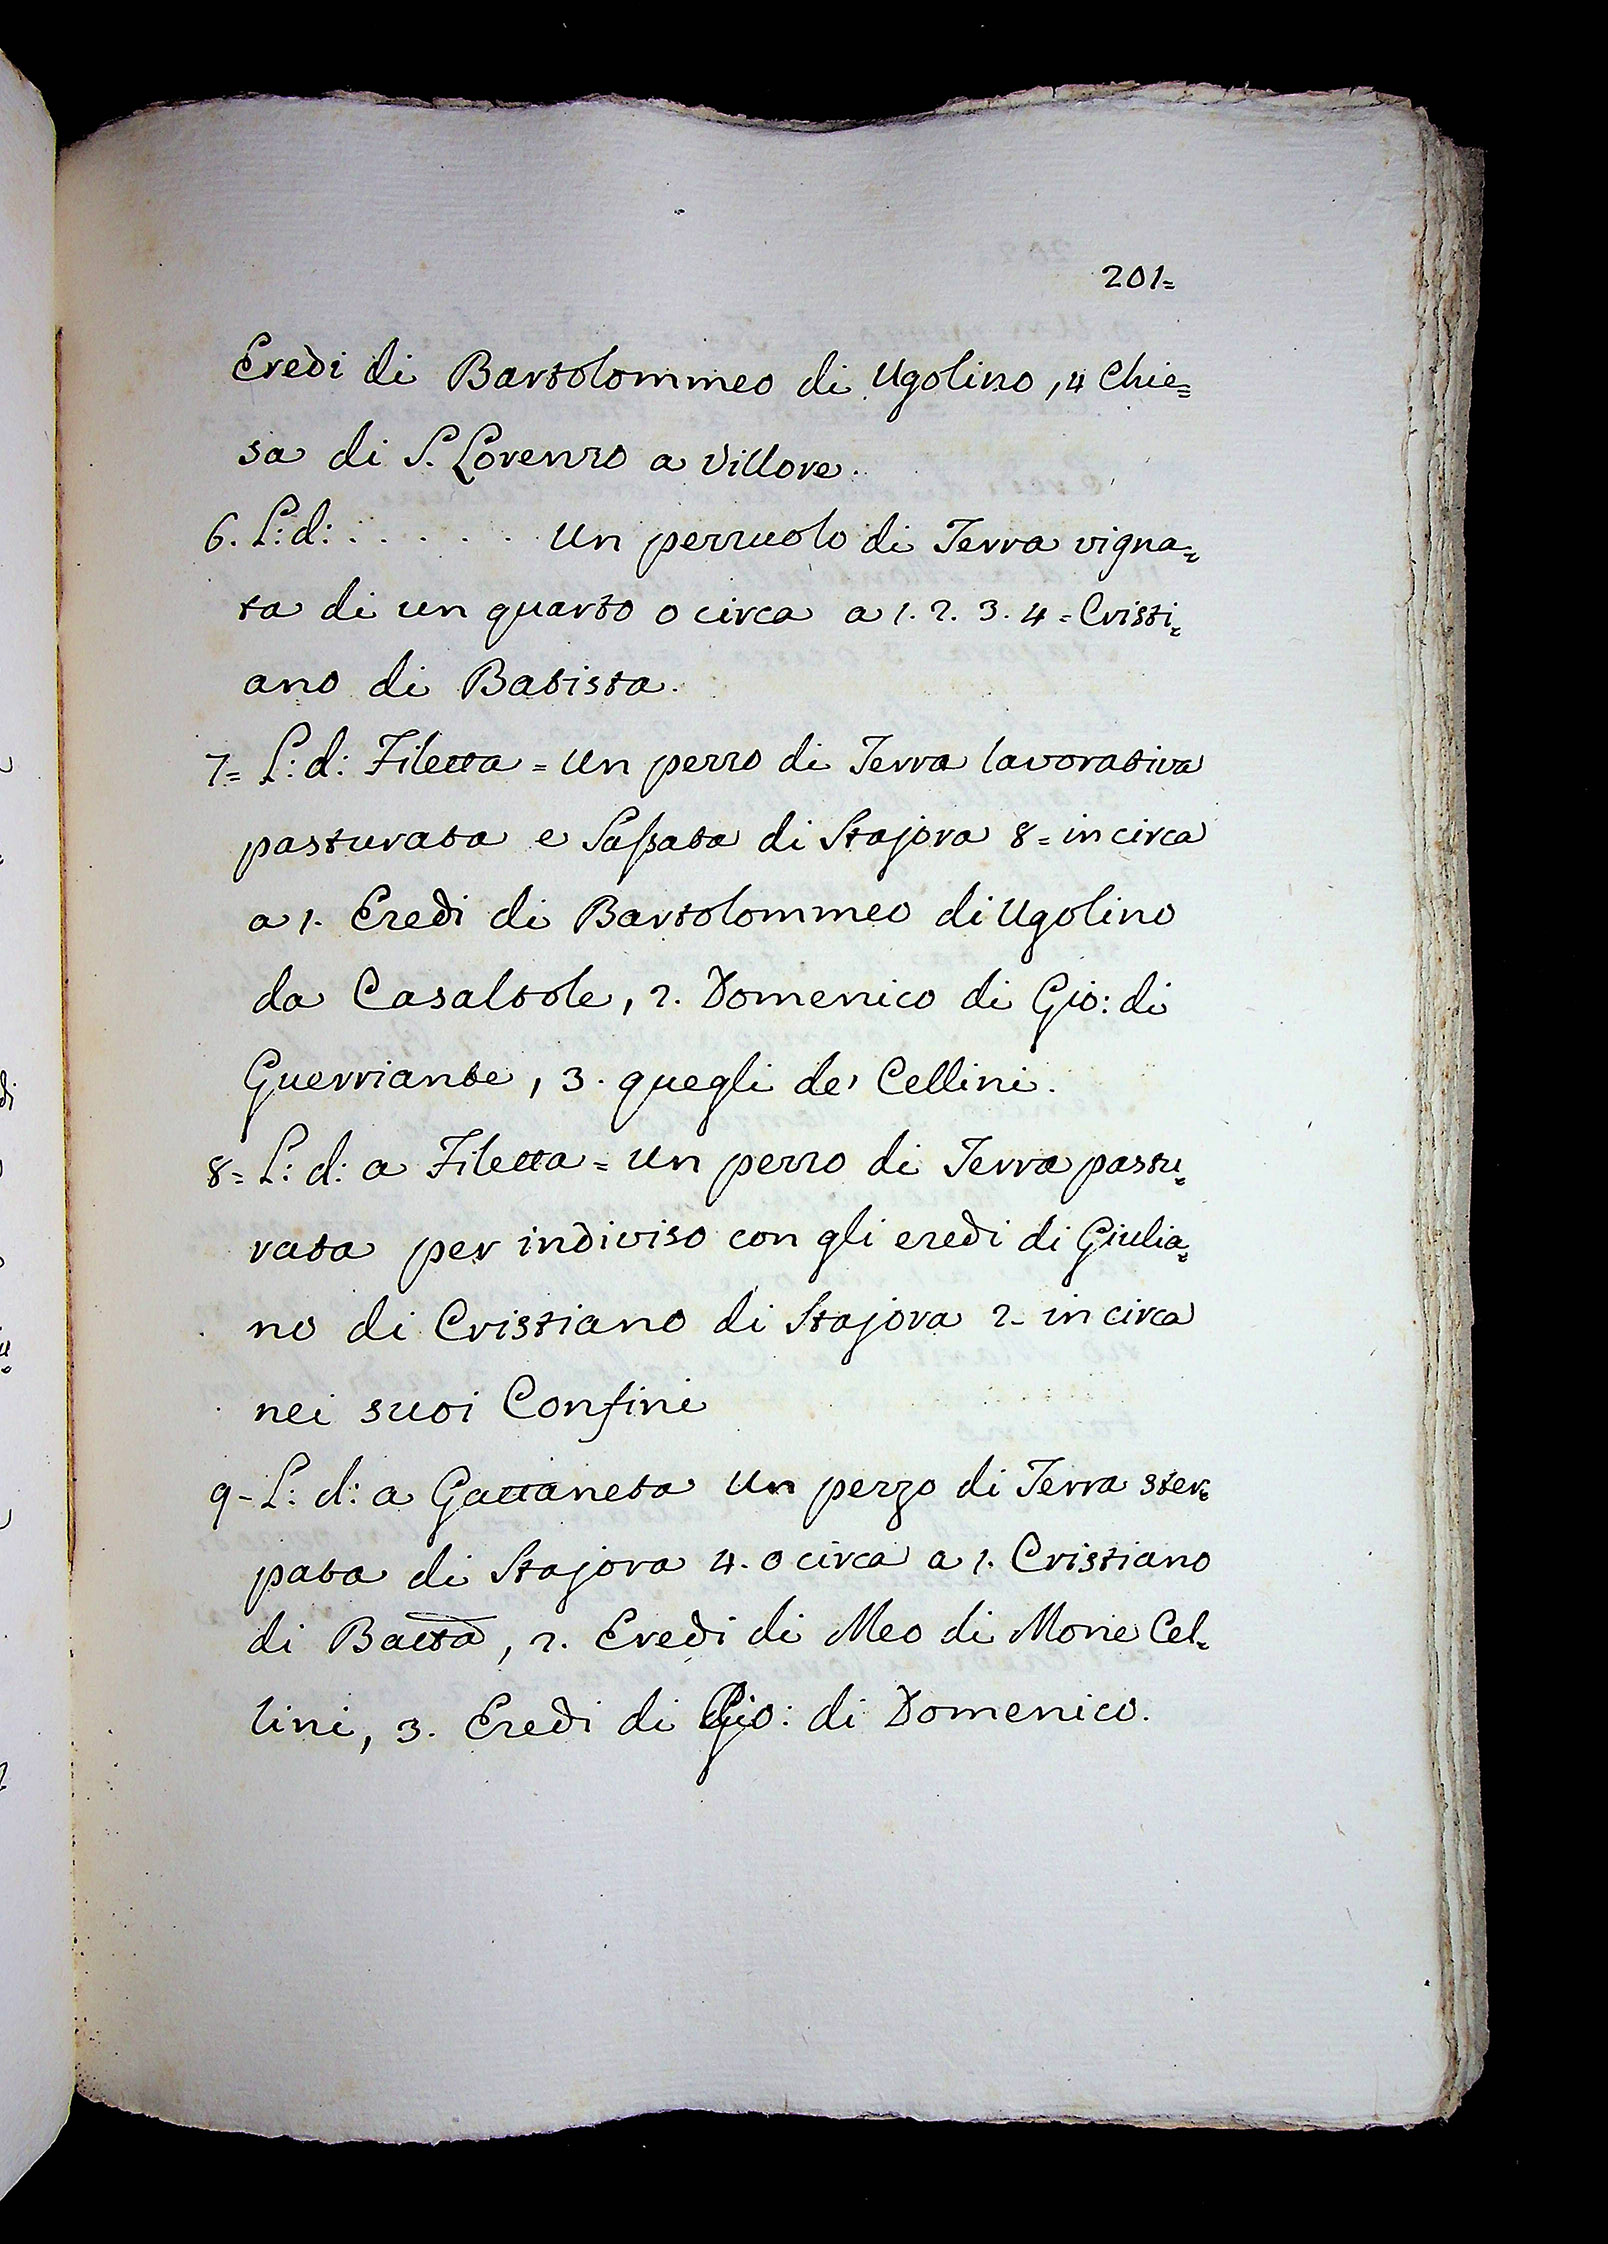 201=
Eredi di Bartolommeo di Ugolino, 4 Chie=
sa di S. Lorenzo a Villore.
6. L: d: . . . . . . Un pezzuolo di Terra vigna=
ta di un quarto o circa a 1. 2. 3. 4 = Cristi=
ano di Batista.
7= L: d: Filetta = Un pezzo di Terra lavorativa
pasturata e Sassata di Stajora 8= in circa
a 1. Eredi di Bartolommeo di Ugolino
da Casaltole, 2. Domenico di Gio: di
Guerriante, 3. quegli de' Cellini.
8= L: d: a Filetta = Un pezzo di Terra pastu=
rata per indiviso con gli eredi di Giulia=
no di Cristiano di Stajora 2- in circa
nei suoi Confini
9- L: d: a Gattaneta Un pezzo di Terra ster=
pata di Stajora 4. o circa a 1. Cristiano
di Batta, 2. Eredi di Meo di Mone Cel=
lini, 3. Eredi di Gio: di Domenico.